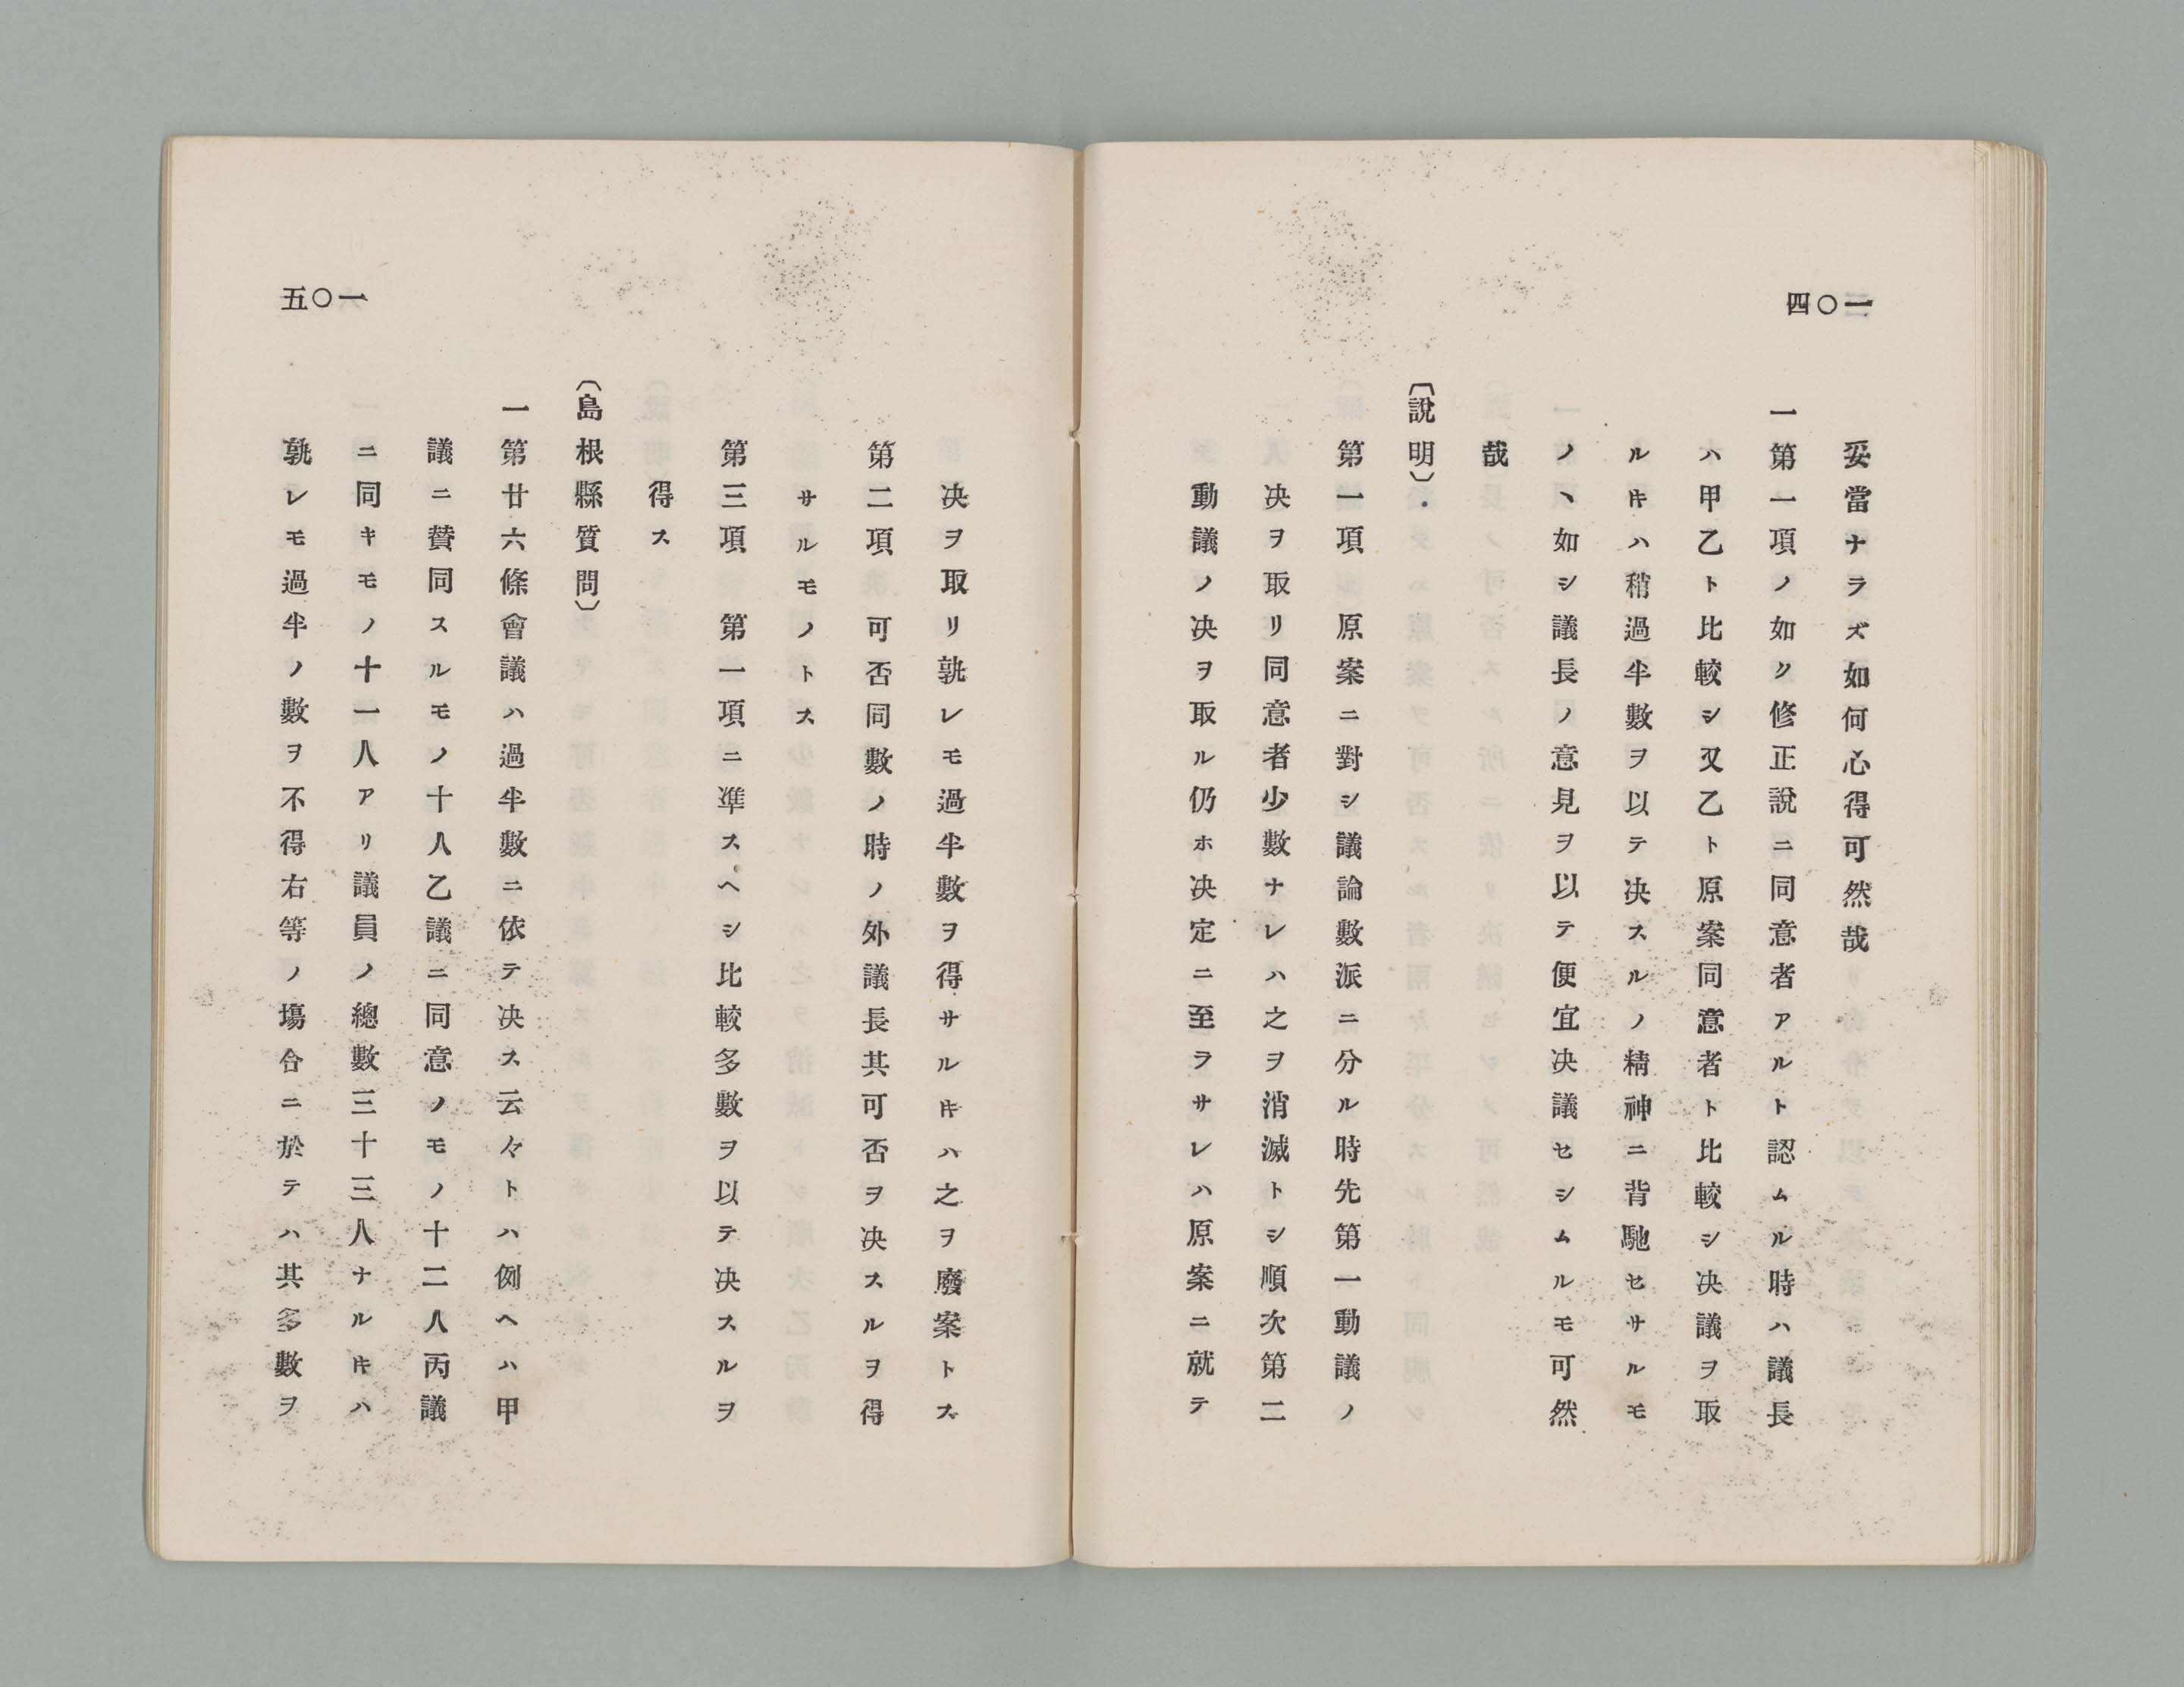 一〇四
妥當ナラズ如何心得可然哉
一第一項ノ如ク修正說ニ同意者アルト認ムル時ハ議長
ハ甲乙ト比較シ又乙ト原案同意者ト比較シ决議ヲ取
ルキハ稍過半數ヲ以テ决スルノ精神ニ背馳セサルモ
ノヽ如シ議長ノ意見ヲ以テ便宜决議セシムルモ可然
哉
〔說明〕
第一項　原案ニ對シ議論數派ニ分ル時先第一動議ノ
决ヲ取リ同意者少數ナレハ之ヲ消滅トシ順次第二
動議ノ决ヲ取ル仍ホ决定ニ至ラサレハ原案ニ就テ
一〇五
决ヲ取リ孰レモ過半數ヲ得サルキハ之ヲ廢案トス
第二項　可否同數ノ時ノ外議長其可否ヲ决スルヲ得
サルモノトス
第三項　第一項ニ準スヘシ比較多數ヲ以テ决スルヲ
得ス
〔島根縣質問〕
一第廿六條會議ハ過半數ニ依テ决ス云々トハ例ヘハ甲
議ニ賛同スルモノ十人乙議ニ同意ノモノ十二人丙議
ニ同キモノ十一人アリ議員ノ總數三十三人ナルキハ
孰レモ過半ノ數ヲ不得右等ノ塲合ニ於テハ其多數ヲ